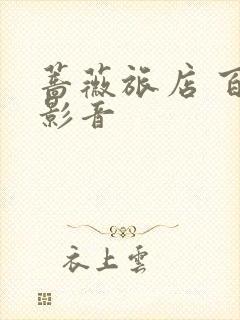 蔷薇旅店 百
影音
衣上雲